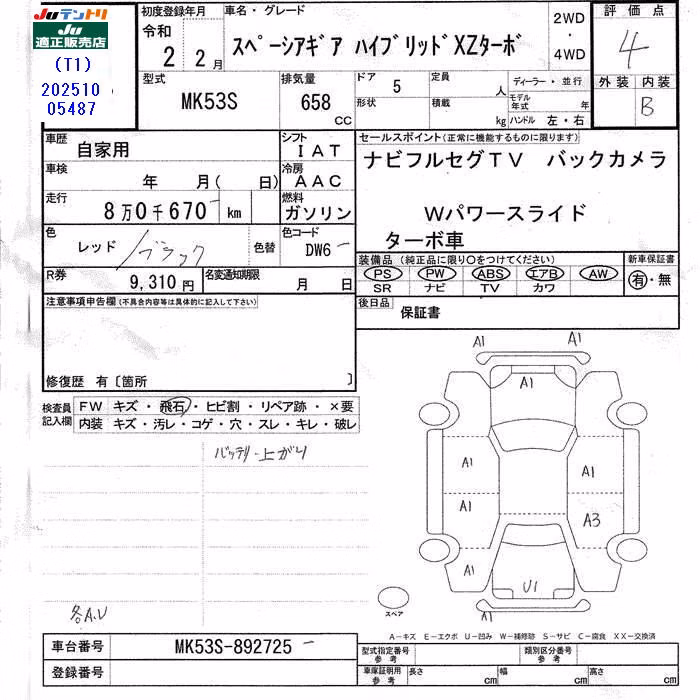 JUテントリ
JU
適正販売店
(T1)
202510
05487
初度登録年月
令和
2 2月
車名・グレード
スペーシアギア ハイブリッドXZターボ
2WD
・
4WD
評価点
4
外装 内装
B
型式
MK53S
排気量
658
CC
ドア 5
形状
定員
人
積載
kg
ディーラー・並行
モデル
年式 年
ハンドル 左・右
車歴
自家用
シフト
IAT
車検
年 月( 日)
冷房
AAC
走行
8万0千670 km
燃料
ガソリン
色
レッド/ブラック
色替
色コード
DW6
R券
9,310円
名変通知期限
月 日
セールスポイント(正常に機能するものに限ります)
ナビフルセグTV バックカメラ
Wパワースライド
ターボ車
装備品(純正品に限り○をつけてください)
PS PW ABS エアB AW
SR ナビ TV カワ
新車保証書
有・無
後日品
保証書
注意事項申告欄(不具合内容等は具体的に記入して下さい)
修復歴 有〔箇所 〕
検査員
記入欄
FW キズ・飛石・ヒビ割・リペア跡・×要
内装 キズ・汚レ・コゲ・穴・スレ・キレ・破レ
バッテリー上がり
各A.U
A1
A1
A1
A1
A1
A1
A3
A1
U1
A1
スペア
A−キズ E−エクボ U−凹み W−補修跡 S−サビ C−腐食 XX−交換済
車台番号
MK53S-892725
登録番号
型式指定番号
参考
類別区分番号
参考
車庫証明用
参考
長さ cm
幅 cm
高さ cm